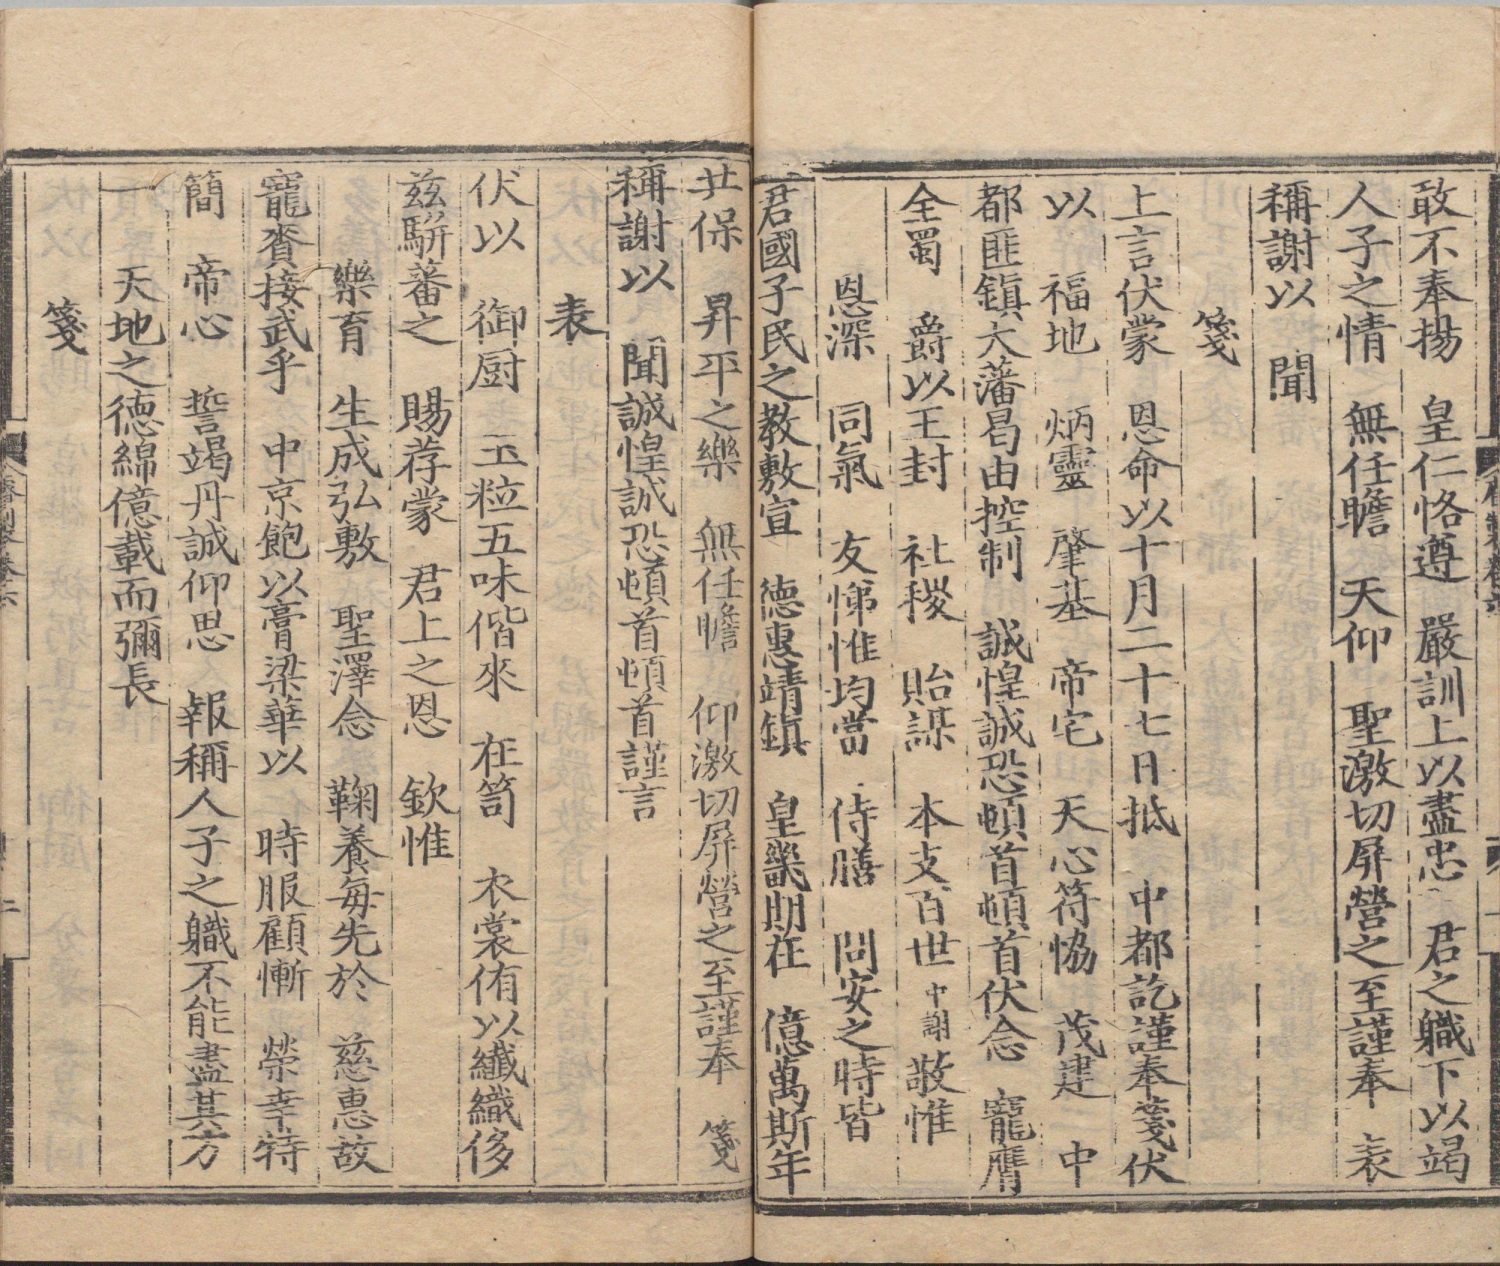 敢不奉揚　皇仁恪遵　嚴訓上以盡忠　君之職下以竭
人子之情　無任瞻　天仰　聖激切屏營之至謹奉　表
稱謝以　聞
箋
上言伏蒙　恩命以十月二十七日抵　中都訖謹奉箋伏
以　福地　炳靈　肇基　帝宅　天心符恊　茂建　中
都匪鎮大藩曷由控制　誠惶誠恐頓首頓首伏念　寵膺
全蜀　爵以王封　社稷　貽謀　本支百世中謝敬惟
恩深　同氣　友悌惟均當　侍膳　問安之時皆
君國子民之教敷宣　德惠靖鎮　皇畿期在　億萬斯年
共保　昇平之樂　無任瞻　仰激切屏營之至謹奉　箋
稱謝以　聞誠惶誠恐頓首頓首謹言
表
伏以　御厨　玉粒五味偕來　在笥　衣裳侑以纎織侈
兹駢蕃之　賜荐蒙　君上之恩　欽惟
樂育　生成弘敷　聖澤念　鞠養每先於　慈惠故
寵賚接武乎　中京飽以膏梁華以　時服顧慚　榮幸特
簡　帝心　誓竭丹誠仰思　報稱人子之職不能盡其方
一　天地之德綿億載而彌長
箋